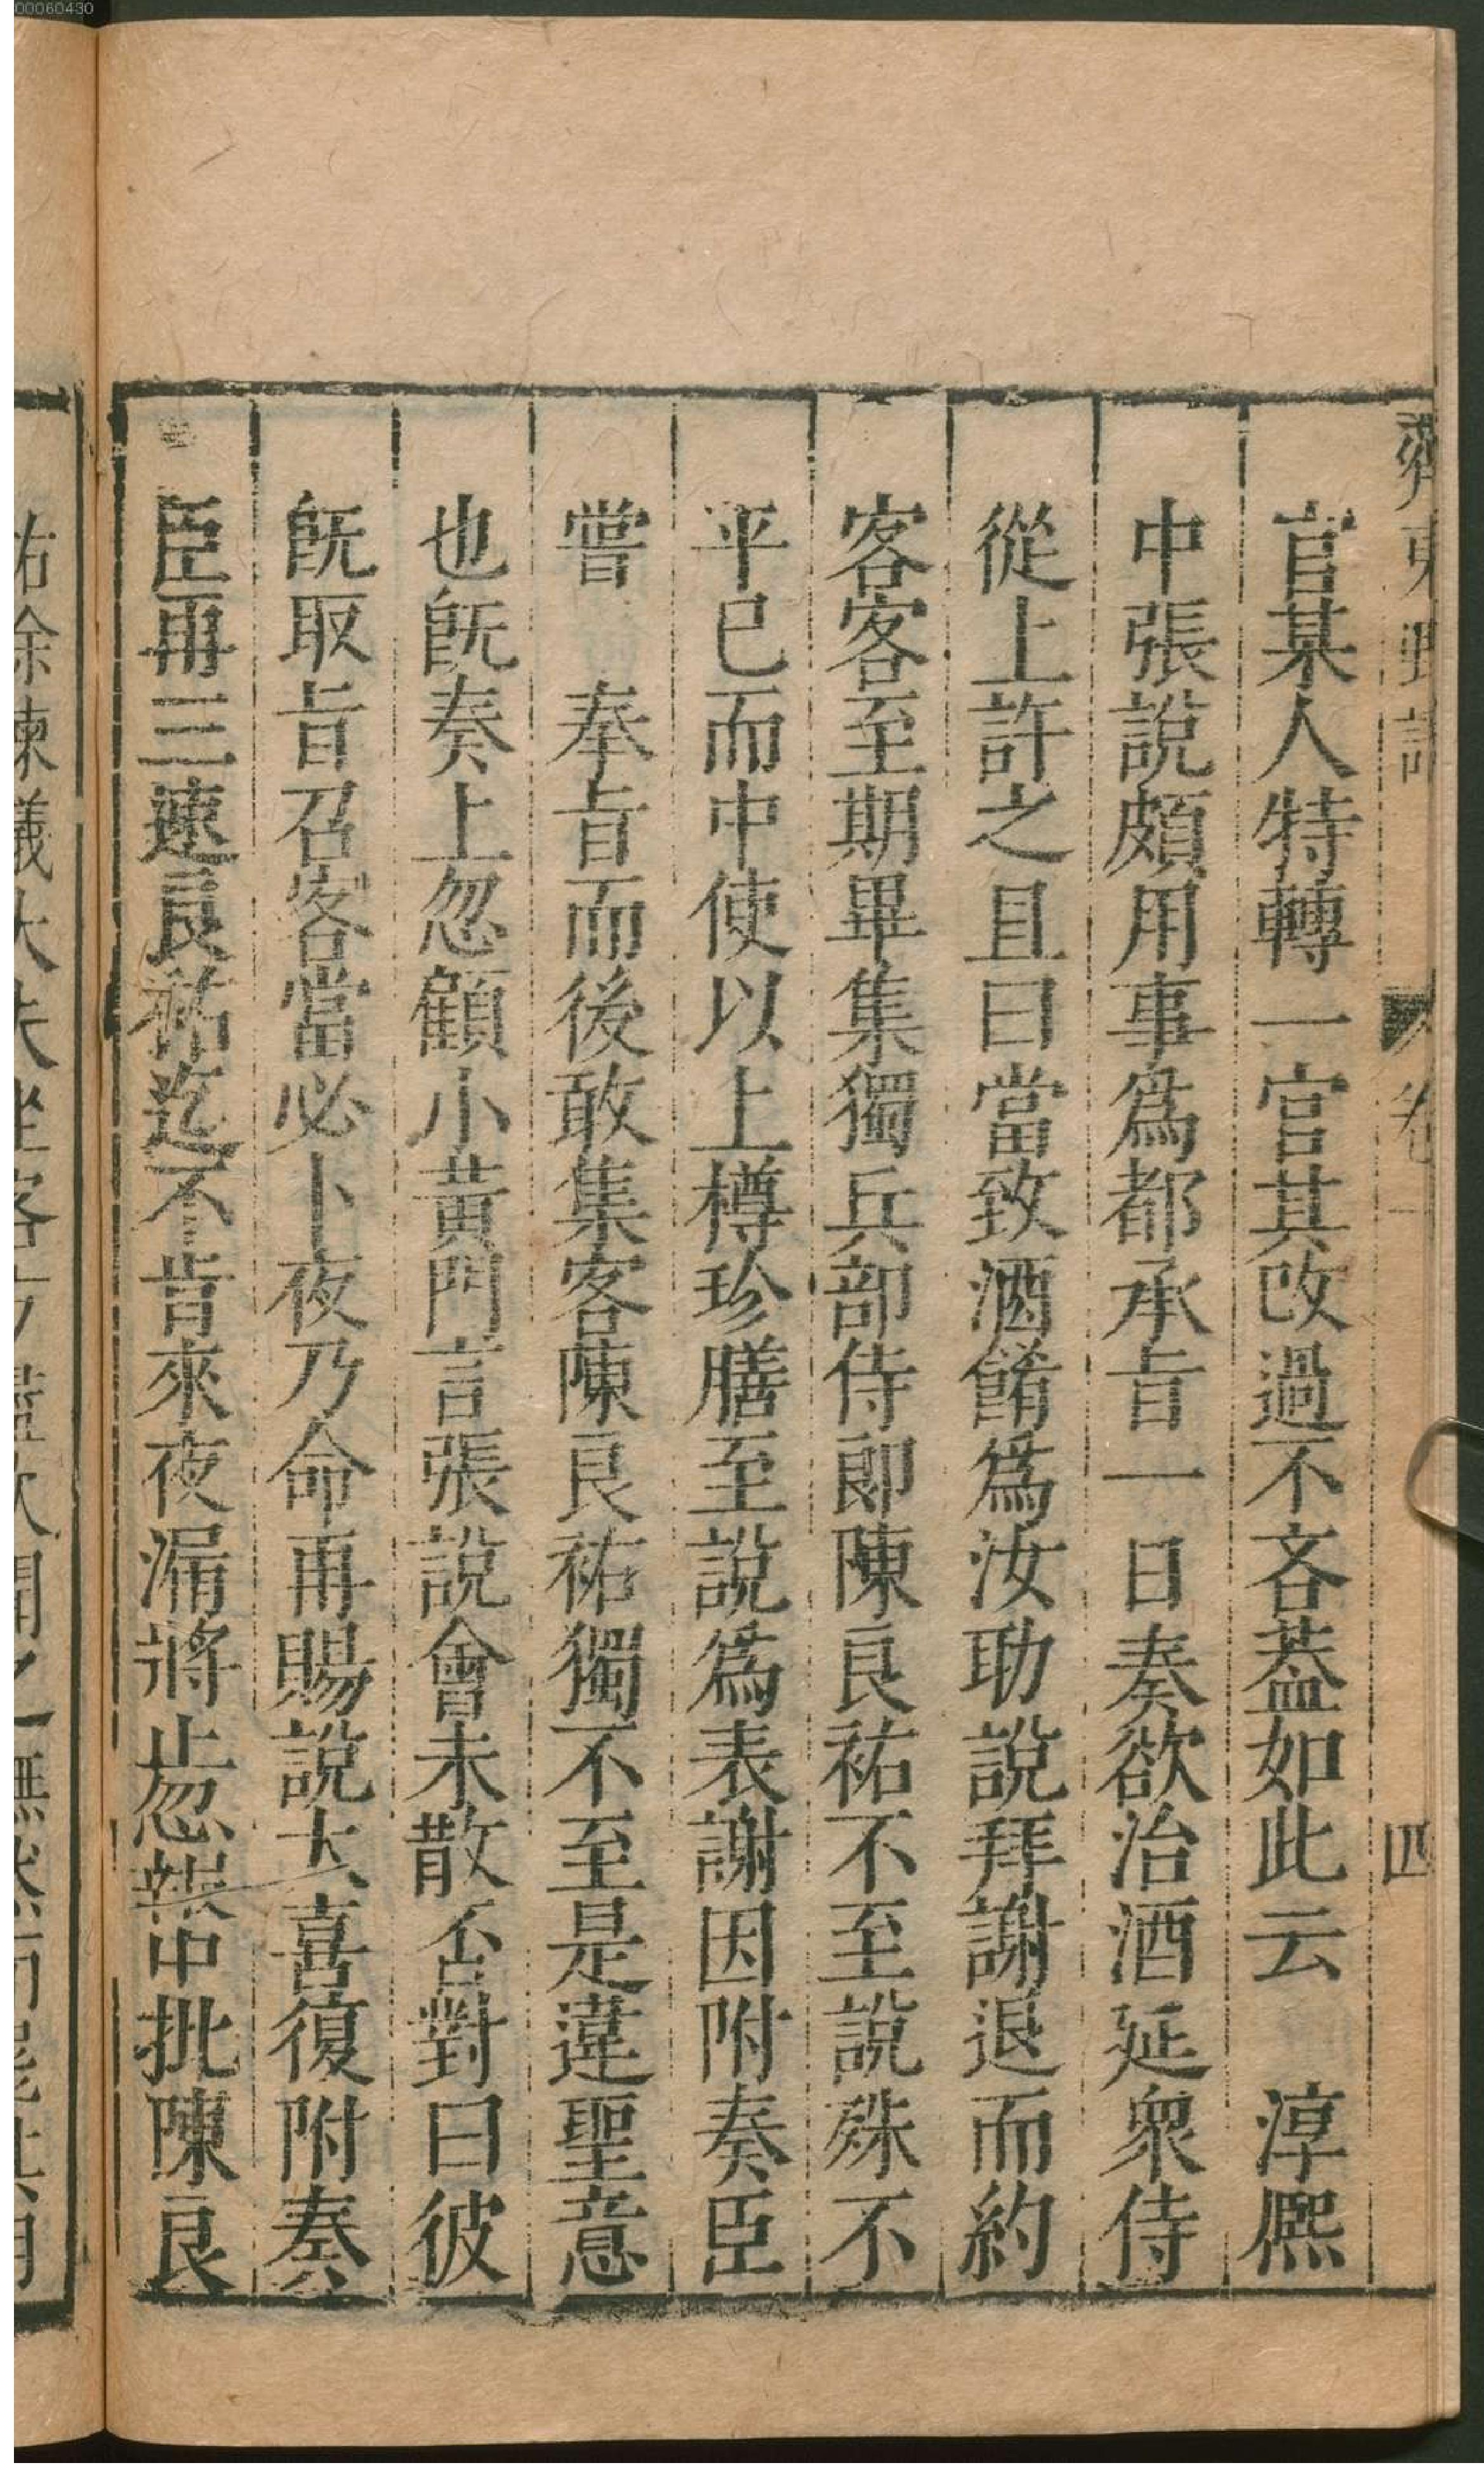 00060430
齊東野語 卷一 四
官某人特轉一官其改過不吝蓋如此云 淳熈
中張說頗用事爲都承旨一日奏欲治酒延衆侍
從上許之且曰當致酒餚爲汝助說拜謝退而約
客客至期畢集獨兵部侍郎陳良祐不至說殊不
平已而中使以上樽珍膳至說爲表謝因附奏臣
嘗 奉旨而後敢集客陳良祐獨不至是違聖意
也旣奏上忽顧小黃門言張說會未散否對曰彼
旣取旨召客當必卜夜乃命再賜說大喜復附奏
臣再三速良祐迄不肯來夜漏將止忽報中批陳良